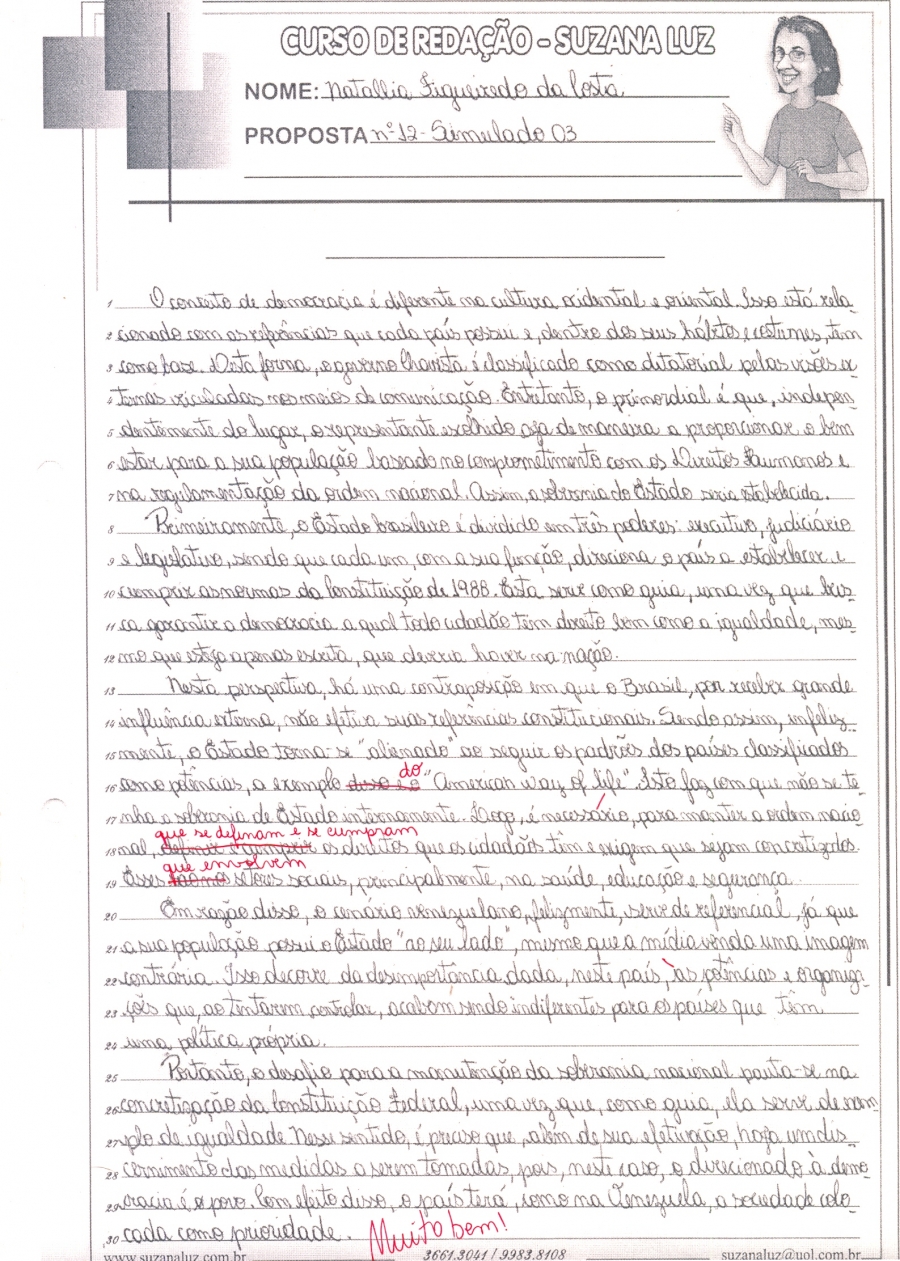 CURSO DE REDAÇÃO - SUZANA LUZ
NOME: Natallia Figueiredo da Costa
PROPOSTA nº 12 - Simulado 03
1 O conceito de democracia é diferente na cultura ocidental e oriental. Isso está rela
2 cionado com as referências que cada país possui e, dentro dos seus hábitos e costumes, tem
3 como base. Desta forma, o governo Chavista é classificado como ditatorial pelas visões ex
4 ternas viculadas nos meios de comunicação. Entretanto, o primordial é que, indepen
5 dentemente do lugar, o representante escolhido aja de maneira a proporcionar o bem
6 estar para a sua população baseado no comprometimento com os Direitos Humanos e
7 na regulamentação da ordem nacional. Assim, a soberania do Estado seria estabelecida.
8 Primeiramente, o Estado brasileiro é dividido em três poderes: executivo, judiciário
9 e legislativo, sendo que cada um, com a sua função, direciona o país a estabelecer e
10 cumprir as normas da Constituição de 1988. Esta serve como guia, uma vez que bus
11 ca garantir a democracia a qual todo cidadão tem direito bem como a igualdade, mes
12 mo que esteja apenas escrita, que deveria haver na nação.
13 Nesta perspectiva, há uma contraposição em que o Brasil, por receber grande
14 influência externa, não efetiva suas referências constitucionais. Sendo assim, infeliz
15 mente, o Estado torna-se "alienado" ao seguir os padrões dos países classificados
do
16 como potências, a exemplo disso é o "American way of life". Isto faz com que não se te
17 nha a soberania de Estado internamente. Logo, é necessário, para manter a ordem nacio
que se definam e se cumpram
18 nal, definir e cumprir os direitos que os cidadãos têm e exigem que sejam concretizados.
que envolvem
19 Esses são nos setores sociais, principalmente, na saúde, educação e segurança.
20 Em razão disso, o cenário venezuelano, felizmente, serve de referencial, já que
21 a sua população possui o Estado "ao seu lado", mesmo que a mídia venda uma imagem
22 contrária. Isso decorre da desimportância dada, neste país, às potências e organiza
23 ções que, ao tentarem controlar, acabam sendo indiferentes para os países que têm
24 uma política própria.
25 Portanto, o desafio para a manutenção da soberania nacional pauta-se na
26 concretização da Constituição Federal, uma vez que, como guia, ela serve de exem
27 plo de igualdade. Nesse sentido, é preciso que, além de sua efetivação, haja um dis
28 cernimento das medidas a serem tomadas, pois, neste caso, o direcionado à demo
29 cracia é o povo. Com efeito disso, o país terá, como na Venezuela, a sociedade colo
30 cada como prioridade. Muito bem!
www.suzanaluz.com.br 3661.3041 / 9983.8108 suzanaluz@uol.com.br